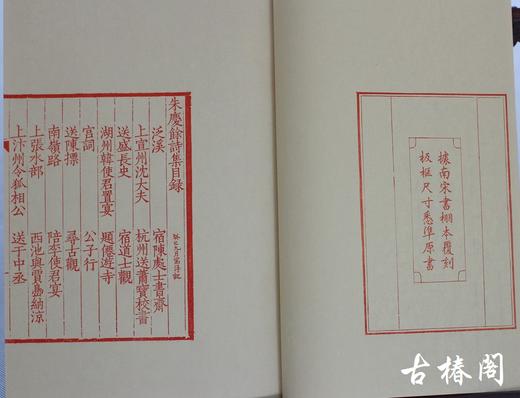 據南宋書棚本覆刻
板框尺寸悉準原書
朱慶餘詩集目録
泛溪　宿陳處士書齋
上宣州沈大夫　杭州送蕭寶校書
送盛長史　宿道士觀
湖州韓使君置宴　題僊遊寺
宮詞　公子行
送陳摽　尋古觀
南嶺路　陪李使君宴
上張水部　西池與賈島納涼
上汴州令狐相公　送于中丞
古椿閣